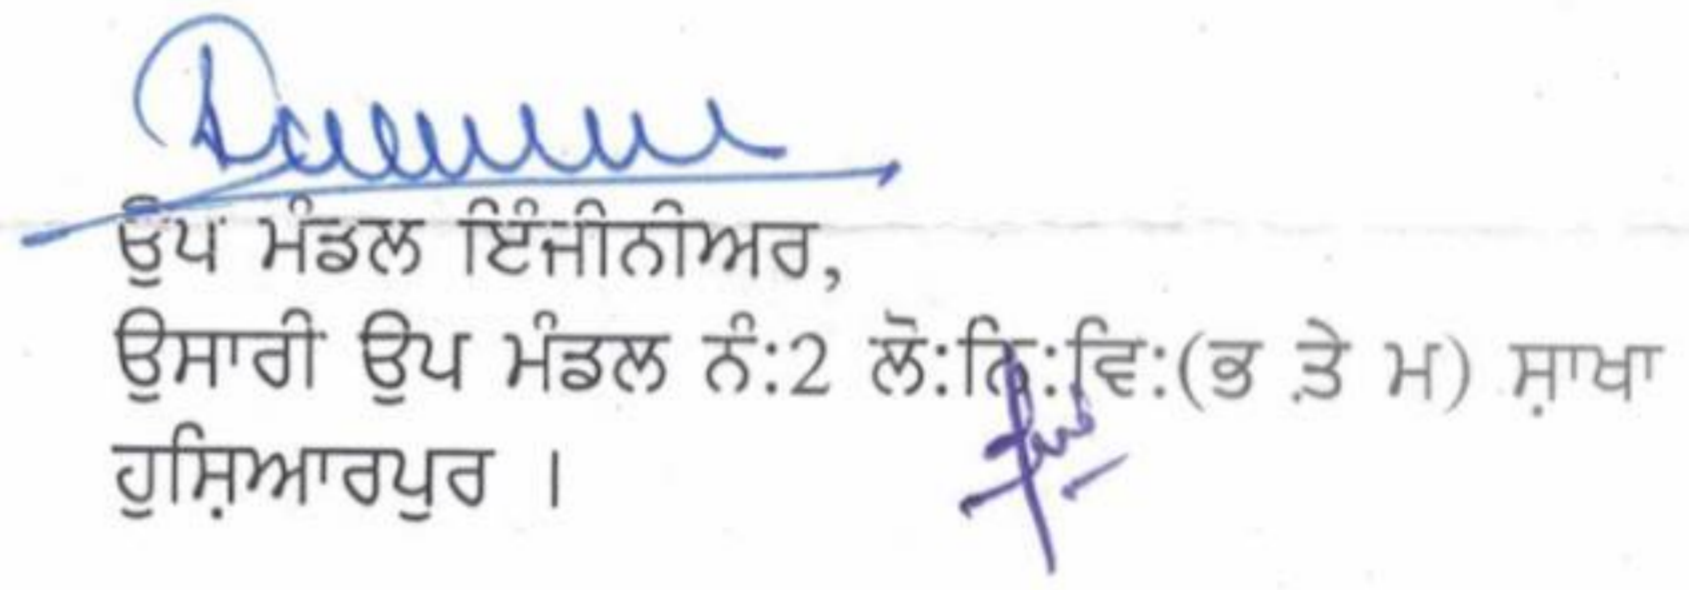 ਉਪ ਮੰਡਲ ਇੰਜੀਨੀਅਰ,
ਉਸਾਰੀ ਉਪ ਮੰਡਲ ਨੰ:2 ਲੋ:ਨਿ:ਵਿ:(ਭ ਤੇ ਮ) ਸ਼ਾਖਾ
ਹੁਸ਼ਿਆਰਪੁਰ ।